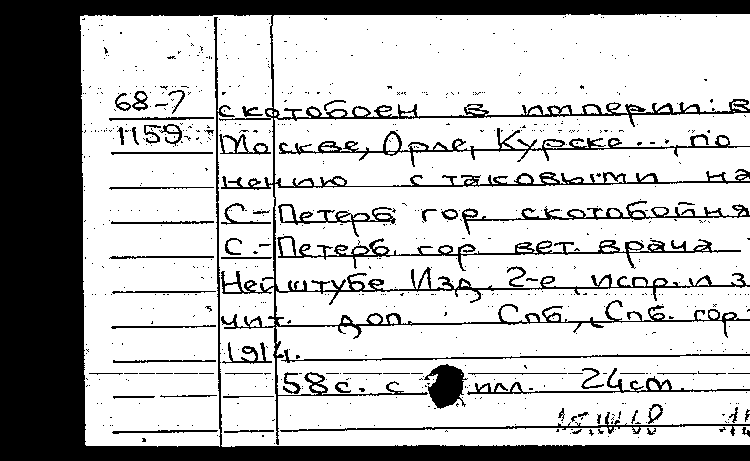 68-7 скотобоен в империи: в
1159 Москве, Орле, Курске..., по
нению с таковыми на
С-Петерб. гор. скотобойня
С.-Петерб. гор. вет. врача
Нейштубе. Изд. 2-е, испр. и з
чит. доп. Спб., Спб. гор.
1914.
58 с. с илл. 24 см.
15.IV 68